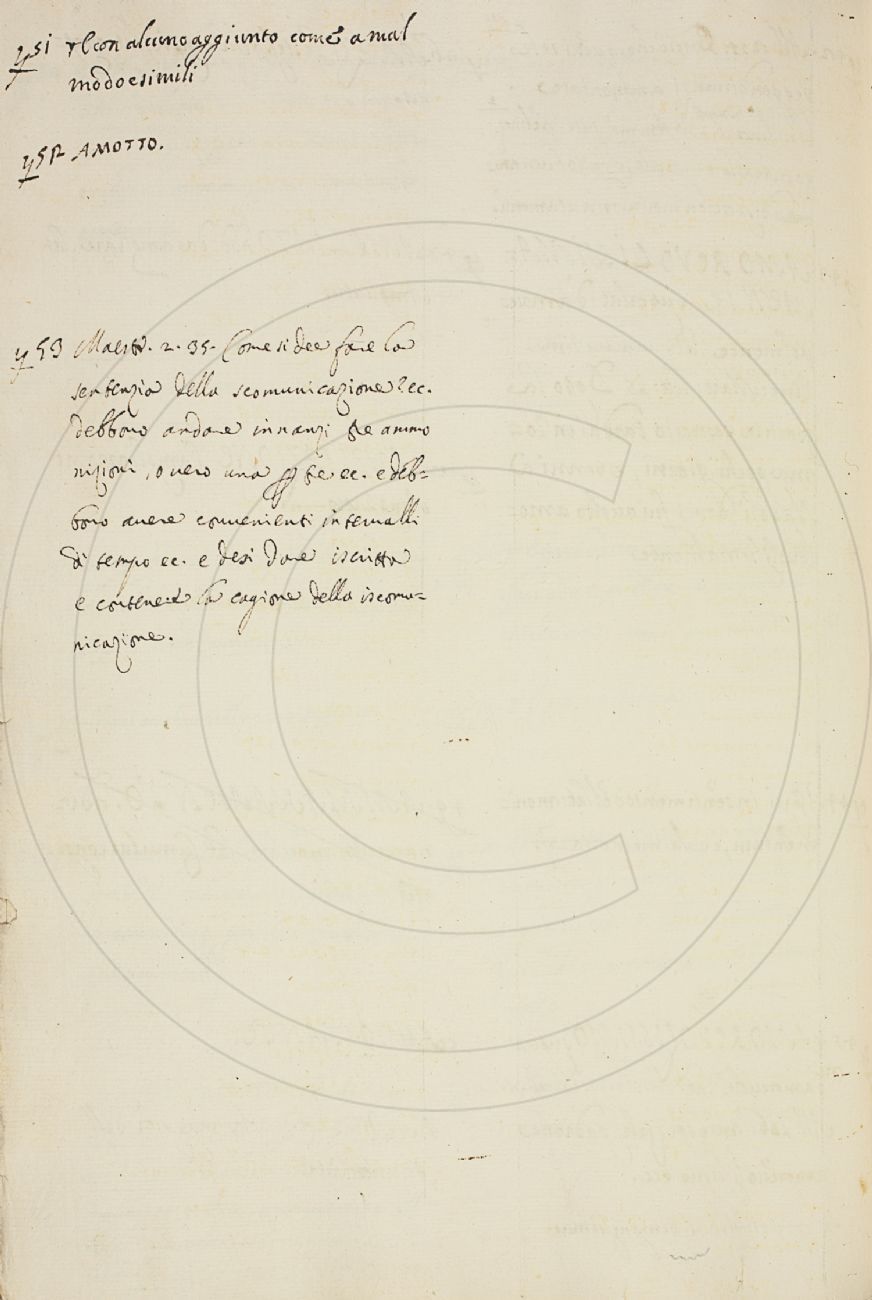 51 r̶ con alcuno aggiunto come a mal
modo e simili
52 AMOTTO.
53 Maestr. 2. 35. Come si dee fare la
sentenzia della scomunicazione? ec.
debbono andare innanzi tre ammo
nizioni, o vero una per tre ec. e deb=
bono avere convenienti intervalli
di tempo ec. e desi dare iscritta
e contenere la cagione della iscomu=
nicazione.